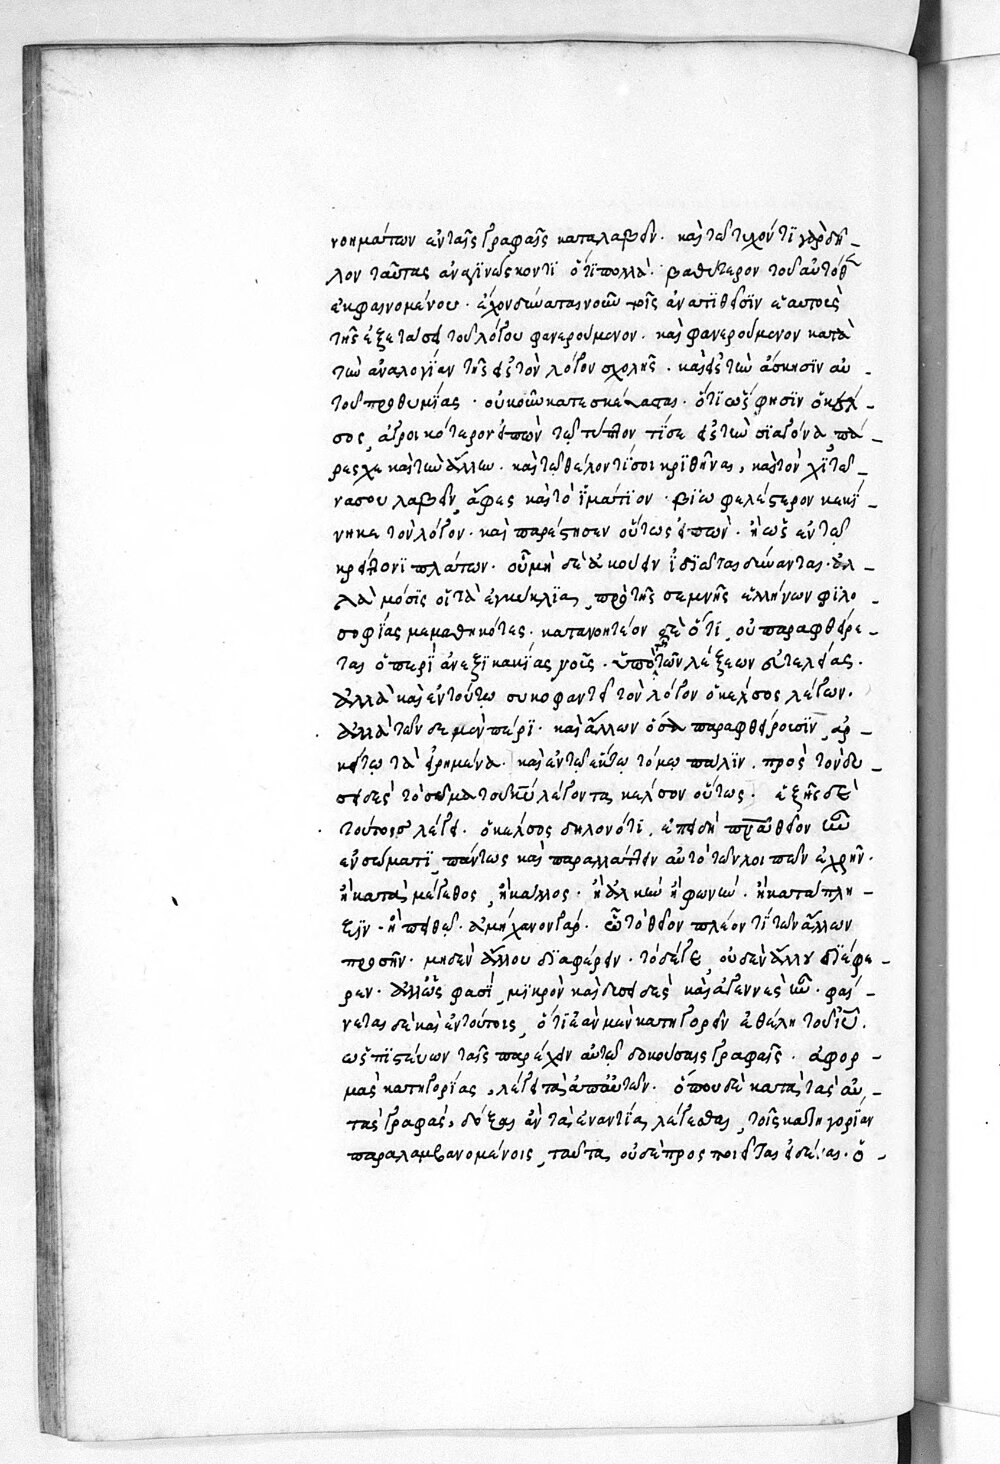 νοημάτων ἐν ταῖς γραφαῖς καταλαβεῖν. καὶ τῷ τυχόντι γὰρ δῆ-
λον ταύτας ἀναγινώσκοντι ὅτι πολλὰ βαθύτερον τοῦ αὐτόθ
ἐκφαινομένου. ἔχειν δύναται νοῦν τοῖς ἀνατιθεῖσιν ἑαυτοὺς
τῇ ἐξετάσει τοῦ λόγου φανερούμενον. καὶ φανερούμενον κατὰ
τὴν ἀναλογίαν τῆς εἰς τὸν λόγον σχολῆς. καὶ εἰς τὴν ἄσκησιν αὐ-
τοῦ προθυμίας. οὐκοῦν κατεσκεύασται. ὅτι ὥς φησιν ὁ κέλ-
σος, ἀγροικότερον εἰπὼν τῷ τύπτοντί σε εἰς τὴν σιαγόνα, πά-
ρεχε καὶ τὴν ἄλλην. καὶ τῷ θέλοντί σοι κριθῆναι, καὶ τὸν χιτῶ-
νά σου λαβεῖν, ἄφες καὶ τὸ ἱμάτιον. βιωφελέστερον κεκί-
νηκε τὸν λόγον. καὶ παρέστησεν οὕτως εἰπὼν. ἢ ὡς ἐν τῷ
κρείτωνι πλάτων. οὗ μὴ δὲ ἀκούειν ἰδιώτας δύνανται. ἀλ-
λὰ μόγις οἱ τὰ ἐγκύκλια, πρὸ τῆς σεμνῆς ἑλλήνων φιλο-
σοφίας μεμαθηκότες. κατανοητέον δὲ ὅτι, οὐ παραφθείρε-
ται ὁ περὶ ἀνεξικακίας νοῦς. ὑπὸ τῆς τῶν λέξεων εὐτελείας.
ἀλλὰ καὶ ἐν τούτῳ συκοφαντεῖ τὸν λόγον ὁ κέλσος λέγων.
ἀλλὰ τῶνδε μὲν πέρι. καὶ ἄλλων ὅσα παραφθείρουσιν, ἀρ-
κείτω τὰ εἰρημένα. καὶ ἐν τῷ ἕκτῳ τόμῳ πάλιν, πρὸς τὸν δυ-
σειδὲς τὸ σῶμα τοῦ κυ λέγοντα κέλσον οὕτως. ἑξῆς δὲ
τούτοις λέγει. ὁ κέλσος δηλονότι, ἐπειδὴ πνα θεῖον ἦν
ἐν σώματι, πάντως καὶ παραλλάττειν αὐτὸ τῶν λοιπῶν ἐχρῆν.
ἢ κατὰ μέγεθος, ἢ κάλλος. ἢ ἀλκὴν ἢ φωνὴν. ἢ κατάπλη-
ξιν. ἢ πειθώ. ἀμήχανον γὰρ. ὅτῳ θεῖον πλέον τι τῶν ἄλλων
προσῆν. μηδὲν ἄλλου διαφέρειν. τὸ δέ γε, οὐδὲν ἄλλου διέφε-
ρεν. ἀλλ' ὥς φασι, μικρὸν καὶ δυσειδὲς καὶ ἀγεννὲς ἦν. φαί-
νεται δὲ καὶ ἐν τούτοις, ὅτι ἐὰν μὲν κατηγορεῖν ἐθέλῃ τοῦ ιυ.
ὡς πιστεύων ταῖς παρέχειν αὐτῷ δοκούσαις γραφαῖς. ἀφορ-
μὰς κατηγορίας, λέγει τὰ ἀπ' αὐτῶν. ὅπου δὲ κατὰ τὰς αὐ-
τὰς γραφάς, δόξαι ἂν τὰ ἐναντία λέγεσθαι, τοῖς κατηγορίαν
παραλαμβανομένοις, ταῦτα, οὐδὲ προσποιεῖται εἰδέναι. ὁ-